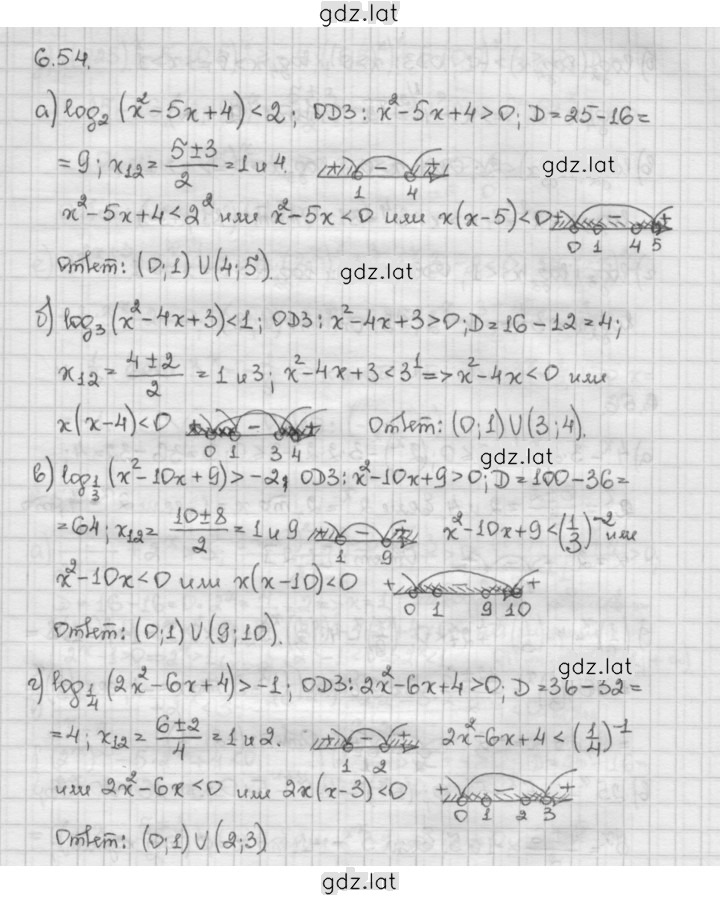 gdz.lat
6.54.
а) log₂(x²-5x+4)<2; ОДЗ: x²-5x+4>0; D=25-16=
=9; x₁₂=(5±3)/2=1 и 4. + - + 1 4 gdz.lat
x²-5x+4<2² или x²-5x<0 или x(x-5)<0 + - + 0 1 4 5
Ответ: (0;1)∪(4;5). gdz.lat
б) log₃(x²-4x+3)<1; ОДЗ: x²-4x+3>0; D=16-12=4;
x₁₂=(4±2)/2=1 и 3; x²-4x+3<3¹=>x²-4x<0 или
x(x-4)<0 + - + 0 1 3 4 Ответ: (0;1)∪(3;4).
gdz.lat
в) log_{1/3}(x²-10x+9)>-2; ОДЗ: x²-10x+9>0; D=100-36=
=64; x₁₂=(10±8)/2=1 и 9 + - + 1 9 x²-10x+9<(1/3)⁻² или
x²-10x<0 или x(x-10)<0 + - + 0 1 9 10
Ответ: (0;1)∪(9;10).
gdz.lat
г) log_{1/4}(2x²-6x+4)>-1; ОДЗ: 2x²-6x+4>0; D=36-32=
=4; x₁₂=(6±2)/4=1 и 2. + - + 1 2 2x²-6x+4<(1/4)⁻¹
или 2x²-6x<0 или 2x(x-3)<0 + - + 0 1 2 3
Ответ: (0;1)∪(2;3)
gdz.lat